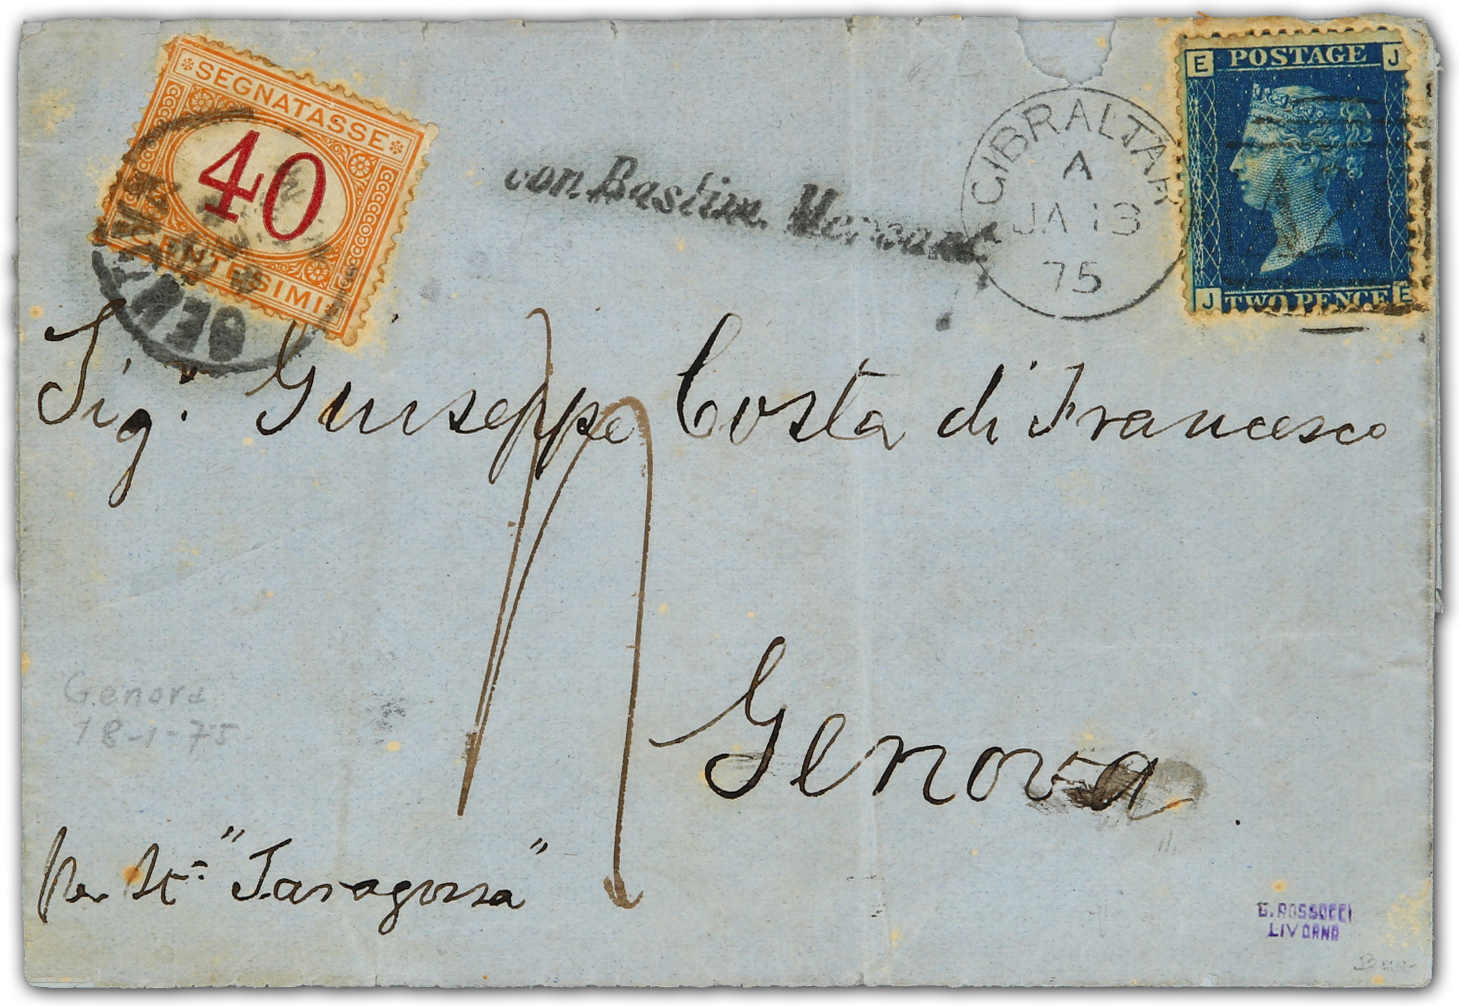 SEGNATASSE
40
CENTESIMI
GENOVA
con Bastim. Mercant.
GIBRALTAR
A
JA 13
75
E POSTAGE J
J TWO PENCE E
Sigr. Giuseppe Costa di Francesco
Genova
Genova
18-1-75
per St= "Saragossa"
G. ROSSOCCI
LIVORNO